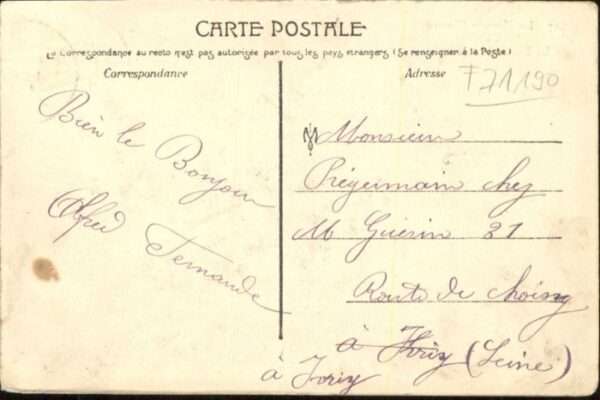 CARTE POSTALE
La Correspondance au recto n'est pas autorisée par tous les pays étrangers (Se renseigner à la Poste)
Correspondance
Adresse
F71190
Bien le Bonjour
Alfred Fernande
M Monsieur
Prégermain chez
M Guérin 21
Route de Choisy
à Ivriy (Seine)
à Ivriy